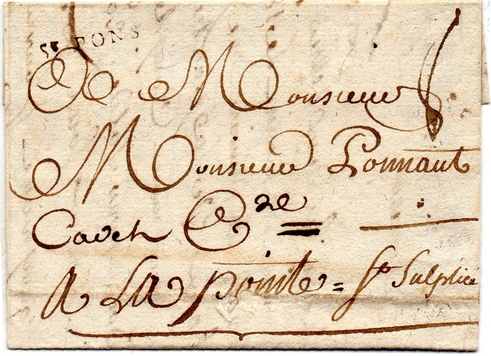 St PONS
A Monsieur
Monsieur Lonnaut
Cadet
A LA Pointe = St Sulplice